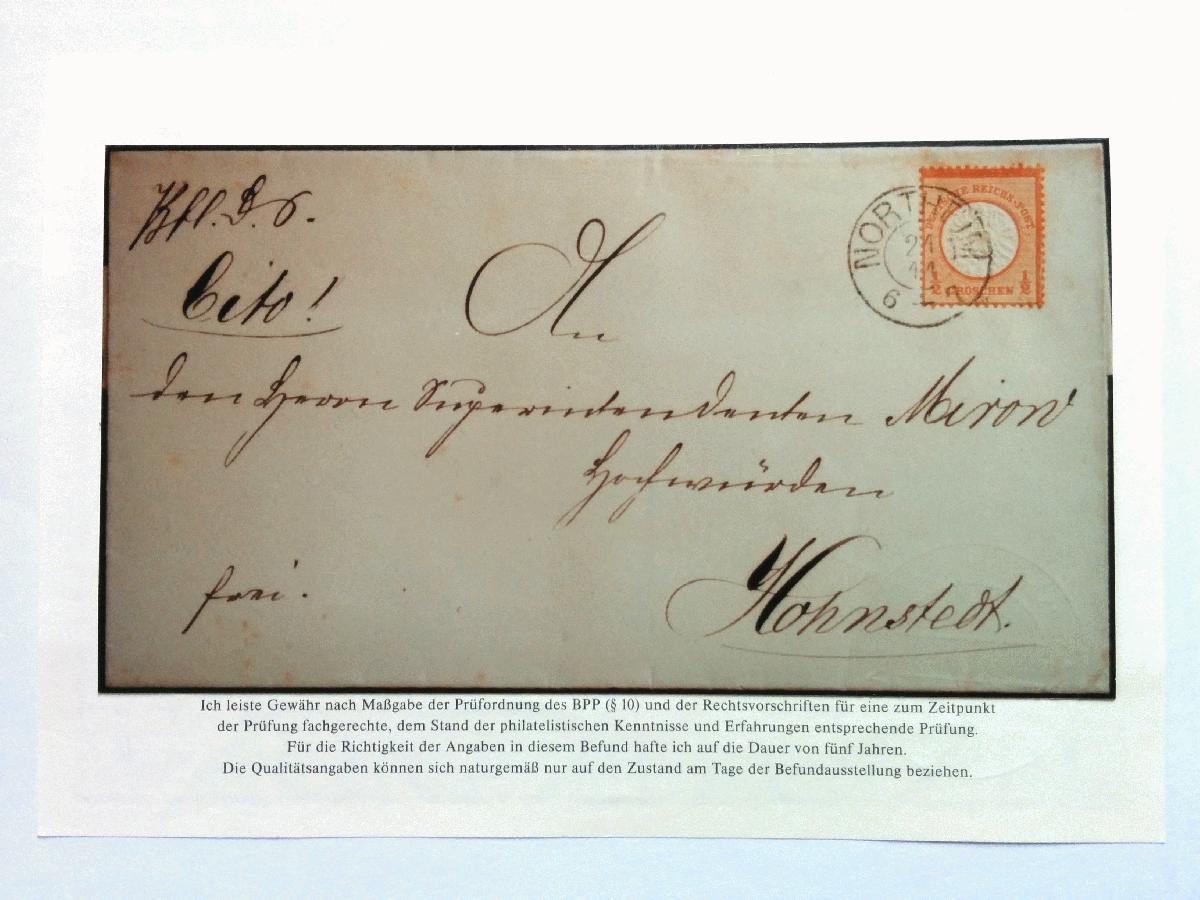 Cito!
An
den Herrn Superintendenten Mirow
Hochwürden
frei.
Hohnstedt.
NORTHEIM
21
11
6
DEUTSCHE REICHS-POST
½ GROSCHEN ½
Ich leiste Gewähr nach Maßgabe der Prüfordnung des BPP (§ 10) und der Rechtsvorschriften für eine zum Zeitpunkt
der Prüfung fachgerechte, dem Stand der philatelistischen Kenntnisse und Erfahrungen entsprechende Prüfung.
Für die Richtigkeit der Angaben in diesem Befund hafte ich auf die Dauer von fünf Jahren.
Die Qualitätsangaben können sich naturgemäß nur auf den Zustand am Tage der Befundausstellung beziehen.